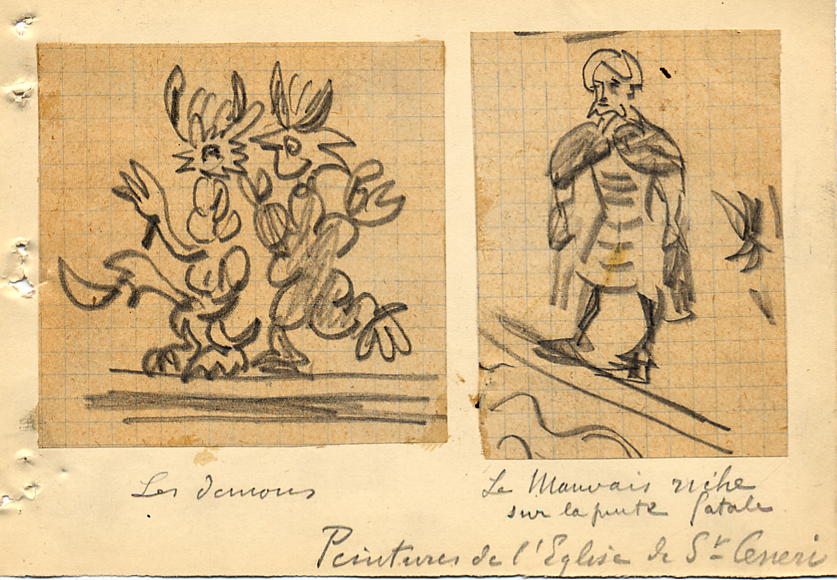 Les demons
Le Mauvais riche
sur la pente fatale
Peintures de l'Eglise de St Ceneri